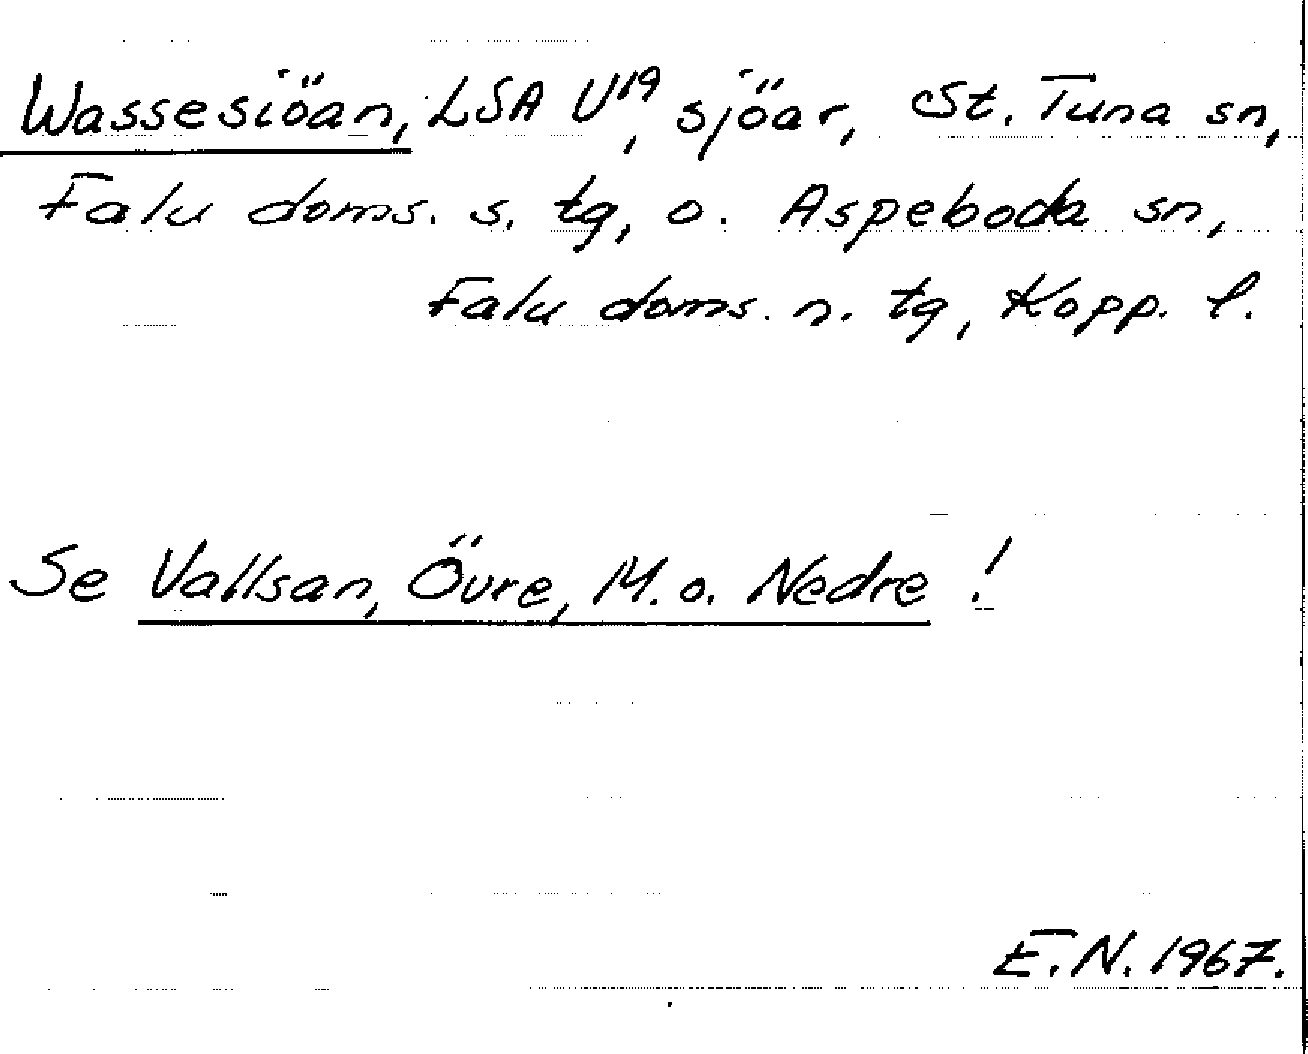 Wassesiöan, LSA U¹⁹, sjöar, St. Tuna sn,
Falu doms. s. tg, o. Aspeboda sn,
Falu doms. n. tg, Kopp. l.
Se Vallsan, Övre, M. o. Nedre !
E.N. 1967.